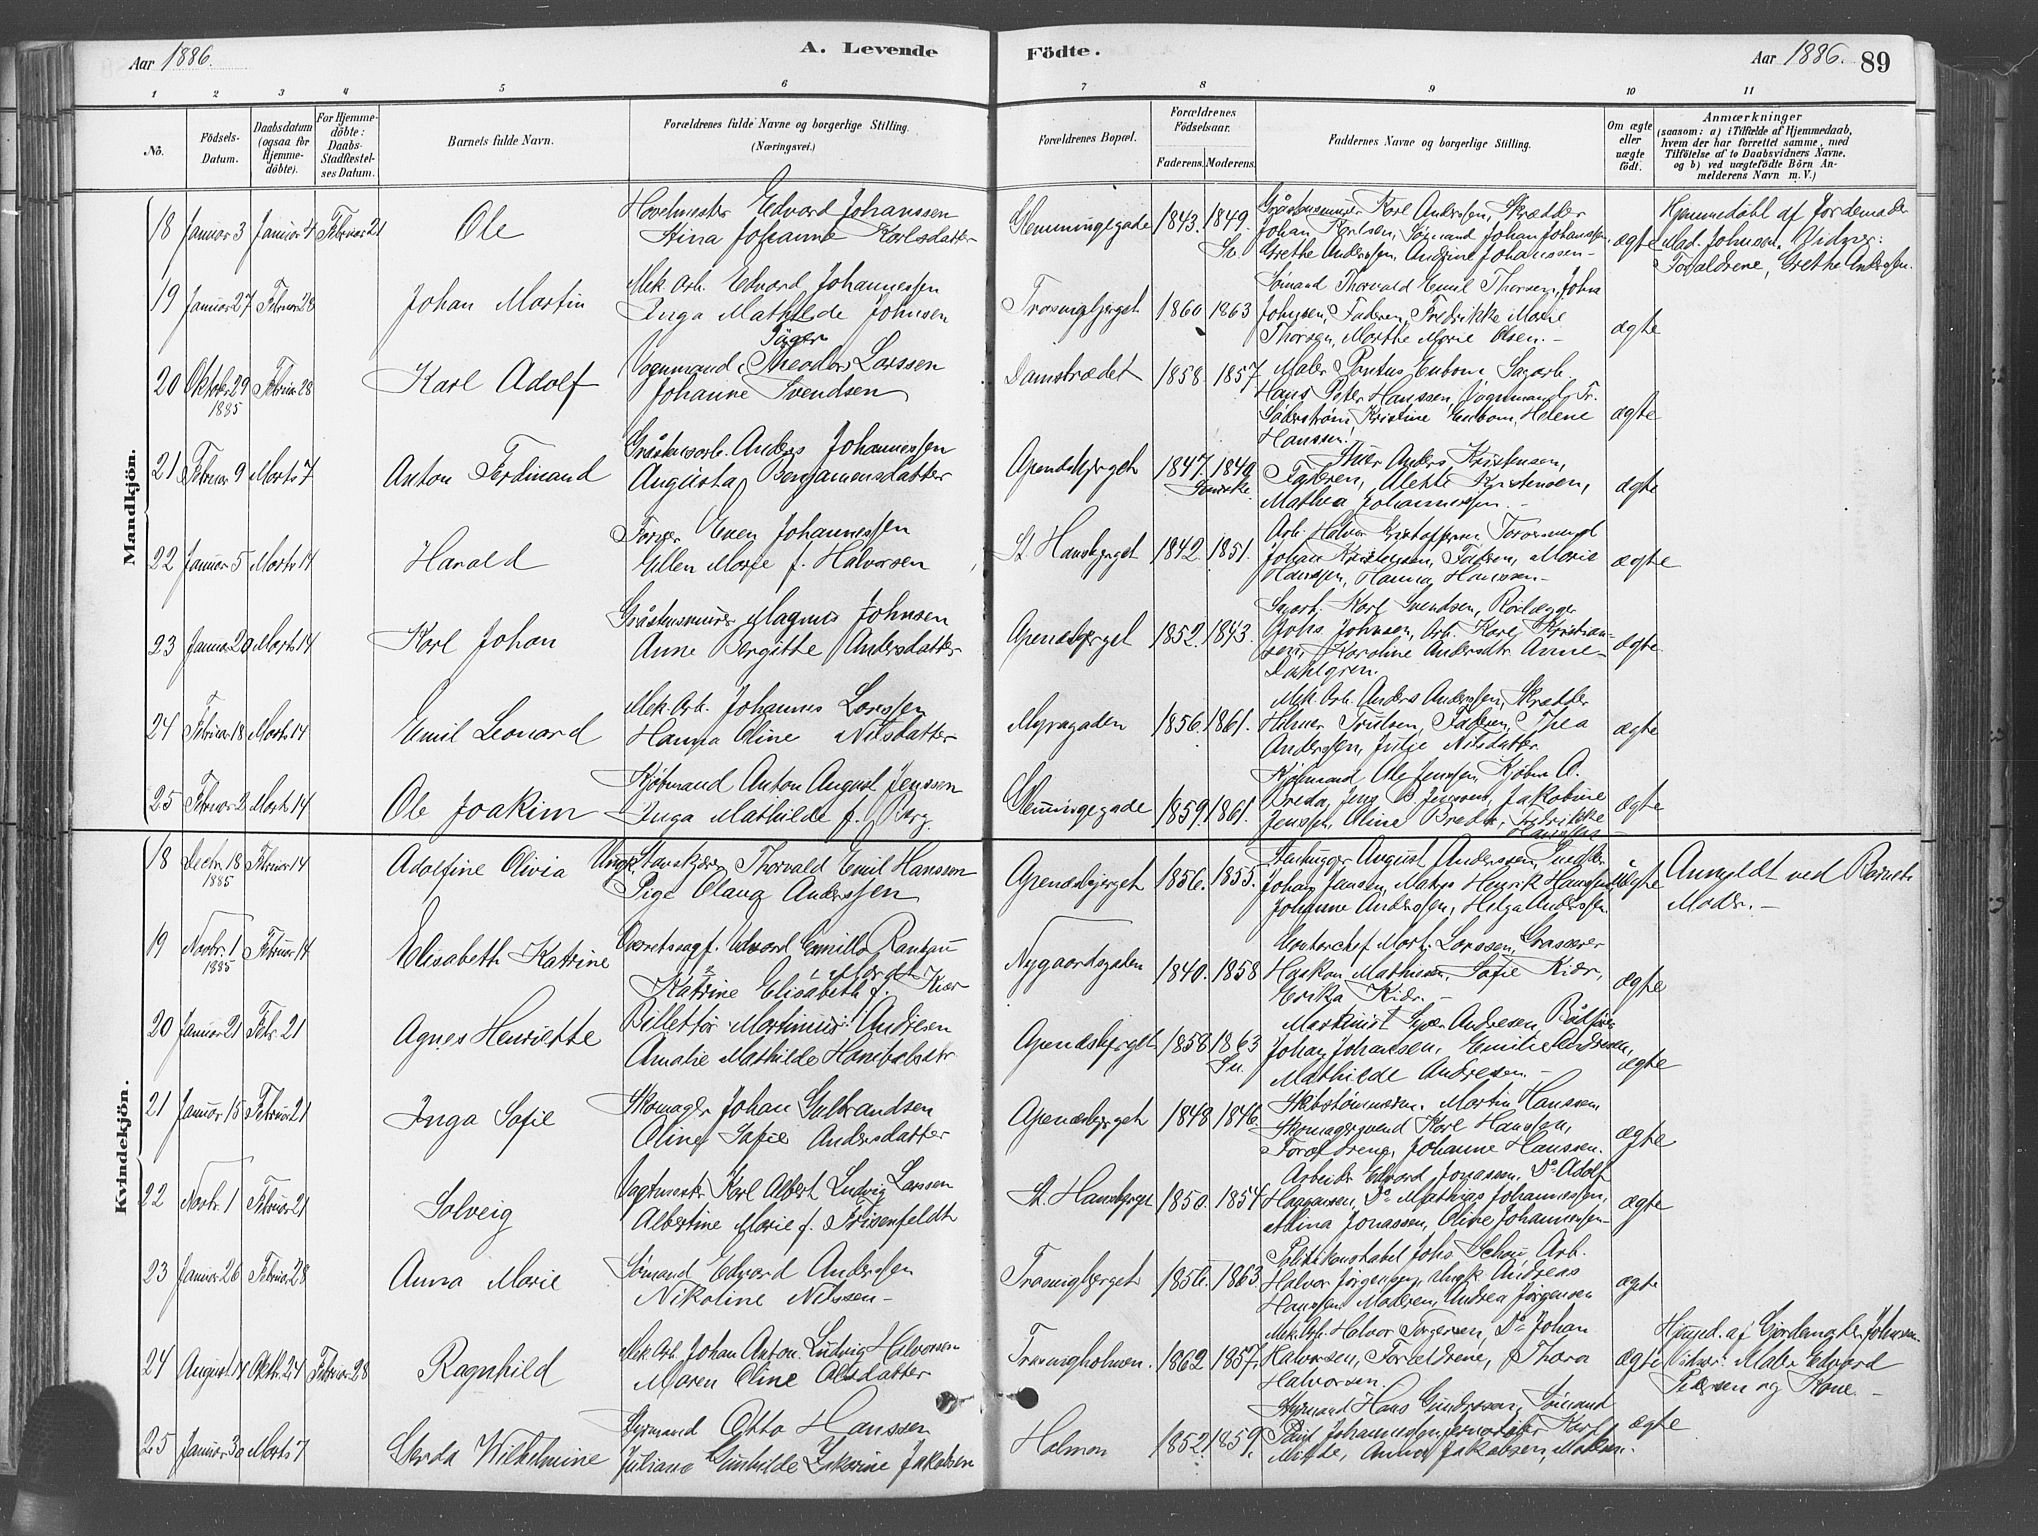 Aar 1886.
A. Levende
Födte.
Aar 1886.
89
1 2 3 4 5 6 7 8 9 10 11
No.
Födsels-
Datum.
Daabsdatum
(ogsaa for
Hjemme-
döbte).
For Hjemme-
döbte:
Daabs-
Stadfæstel-
ses Datum.
Barnets fulde Navn.
Forældrenes fulde Navne og borgerlige Stilling.
(Næringsvei.)
Forældrenes Bopæl.
Forældrenes
Födselsaar.
Faderens. Moderens.
Faddernes Navne og borgerlige Stilling.
Om ægte
eller
uægte
födt.
Anmærkninger
(saasom: a) i Tilfælde af Hjemmedaab,
hvem der har forrettet samme, med
Tilföielse af to Daabsvidners Navne.
og b) ved uægtefödte Börn An-
melderens Navn m. V.)
Mandkjön.
18 Januar 3 Januar 4 Februar 21 Ole
Hovelmester Edvard Johanssen
Stina Johanne Karlsdatter
Glemmingegade 1843. 1849.
Johan Karlsen, Sømand Johan Johanssen,
Grethe Anderssen, Andrine Johanssen
ægte
Hjemmedøbt af Jordemoder
Mad. Johnsen. Vidner:
Forældrene, Grethe Anderssen.
19 Januar 27 Februar 28 Johan Martin
Mek. Arb. Edvard Johannessen
Inga Mathilde Johnsen
Trosvigbjerget 1860 1863
Sømand Thorvald Emil Thorsen, John
Johnsen, Faderen, Fredrikke Marie
Thorsen, Marthe Marie Olsen.
ægte
20 Oktober 29 1885 Februar 28 Karl Adolf
Vognmand Theodor Larssen
Johanne Svendsen
Damstrædet 1858. 1857.
Maler Pontus Enbom Sagarb.
Hans Peter Hanssen, Vognmand Fr.
Söderström, Kristine Enbom, Helene
Hanssen.
ægte
21 Februar 9 Marts 7 Anton Ferdinand
Gråstensarb. Anders Johannessen
Augusta Benjaminsdatter
Apenæsbjerget 1847. 1840.
Svenske.
Anders Kristensen,
Faderen, Alette Kristensen,
Mathea Johannessen.
ægte
22 Januar 5 Marts 14 Harald
Even Johannessen
Ellen Marie f. Halvorsen
St. Hansbjerget 1842. 1851.
Arb. Halvor Kristoffersen
Johan Kristensen, Faderen, Marie
Hanssen, Hanna Hanssen
ægte
23 Januar 20 Marts 14 Karl Johan
Gråstensmurer Magnus Johnsen
Anne Bergitte Andersdatter
Apenæsbjerget 1852. 1843.
Sagarb. Karl Svendsen, Rørlægger
Johs Johnsen, Arb. Karl Kristian-
sen, Karoline Andersdtr. Anne
Dahlgren.
ægte
24 Februar 18 Marts 14 Emil Leonard
Mek. Arb. Johannes Larssen
Hanna Oline Nilsdatter
Myragaden 1856. 1861.
Mek. Arb. Anders Anderssen, Skrædder
Hilmer Trulsen, Faderen, Thea
Anderssen, Julie Nilsdatter.
ægte
25 Februar 2 Marts 14 Ole Joakim
Kjøbmand Anton August Jenssen
Inga Mathilde f. Berg.
Glemmingegade 1859. 1861.
Kjøbmand Ole Jenssen, Kjøbm A.
Breda, Jens B. Jenssen, Jakobine
Jenssen, Oline Breda, Fredrikke
Hanssen
ægte
Kvindekjön.
18 Decbr. 18 1885 Februar 14 Adolfine Olivia
Thorvald Emil Hanssen
Pige Olava Anderssen
Apenæsbjerget 1856. 1855.
Stenhugger August Anderssen,
Johan Jansen, Henrik Hanssen
Johanne Anderssen, Helga Anderssen
Uægte
Anmeldt ved Barnets
Moder.
19 Novbr. 1 1885 Februar 14 Elisabeth Katrine
Overretssagf. Edvard Emillo Rantzau
Katrine Elisabeth f. Kiær
Nygaardsgaden 1840. 1858
Kontorchef Mort. Larssen,
Haakon Mathisen, Sofie Kiær,
Erika Kiær.
ægte
20 Januar 21 Febr. 21 Agnes Henriette
Billettør Martinius Andresen
Amalie Mathilde Hanibalsdtr.
Apenæsbjerget 1858 1863
Maskinist Andresen
Johan Johansen, Emilie Andresen,
Mathilde Andresen.
ægte
21 Januar 15 Februar 21 Inga Sofie
Skomager Johan Gulbrandsen
Oline Sofie Andersdatter
Apenæsbjerget 1848 1846
Skibstømmerm. Martin Hanssen
Skomagersvend Karl Hanssen,
Forældrene, Johanne Hanssen.
ægte
22 Novbr. 1 Februar 21 Solveig
Vagtmester Karl Albert Ludvig Larssen
Albertine Marie f. Frisenfeldt
St. Hansbjerget 1850. 1854
Arbeider Edvard Jonassen. Do Adolf
Haagensen, Do Mathias Johannessen,
Mina Jonassen, Oline Johannessen
ægte
23 Januar 26 Februar 28 Anna Marie
Sømand Edvard Anderssen
Nikoline Nilssen
Trosvigbjerget 1856. 1863
Politikonstabel Johs Schou Arb.
Halvor Jørgensen, Ungk. Andreas
Hanssen, Moderen, Andrea Jørgensen
ægte
24 August 14 Oktb. 24 Februar 28 Ragnhild
Mek. Arb. Johan Anton Ludvig Halvorsen
Maren Oline Olsdatter
Trosvigholmen. 1862 1857.
Mek. Arb. Halvor Torgersen, Do Johan
Halvorsen, Forældrene, Thora
Halvorsen.
ægte
Hjemd. af Gjordemoder Johnsen
Vidner: Maler Edvard
Pedersen og Kone.
25 Januar 30 Marts 7 Gerda Wilhelmine
Styrmand Otto Hanssen
Juliane Gunhilde Zakarine Jakobsen
Holmen 1852. 1859.
Styrmand Hans Gundersen, Sømand
Paul Johannessen, Karl
Mithe, Anna Jakobsen, Moderen.
ægte